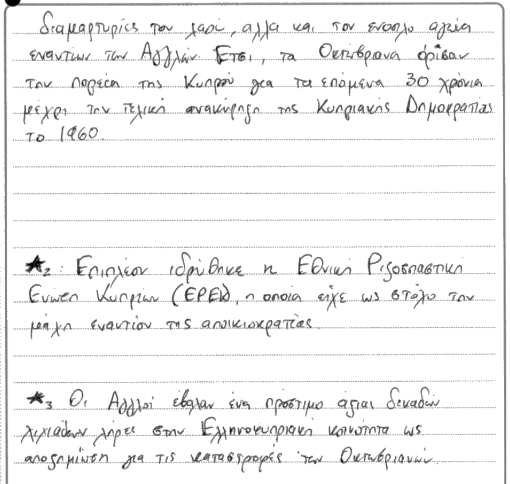 διαμαρτυρίες του λαού, αλλά και τον ένοπλο αγώνα
εναντίων των Άγγλων. Έτσι, τα Οκτωβριανά όρισαν
την πορεία της Κύπρου για τα επόμενα 30 χρόνια
μέχρι την τελική ανακύρηξη της Κυπριακής Δημοκρατίας
το 1960.
*2: Επιπλέον ιδρύθηκε η Εθνική Ριζοσπαστική
Ένωση Κυπρίων (ΕΡΕΚ), η οποία είχε ως στόχο την
μάχη εναντίον της αποικιοκρατίας.
*3 Οι Άγγλοι έβαλαν ένα πρόστιμο αξίας δεκάδων
χιλιάδων λίρες στην Ελληνοκυπριακή κοινότητα ως
αποζημίωση για τις καταστροφές των Οκτωβριανών.